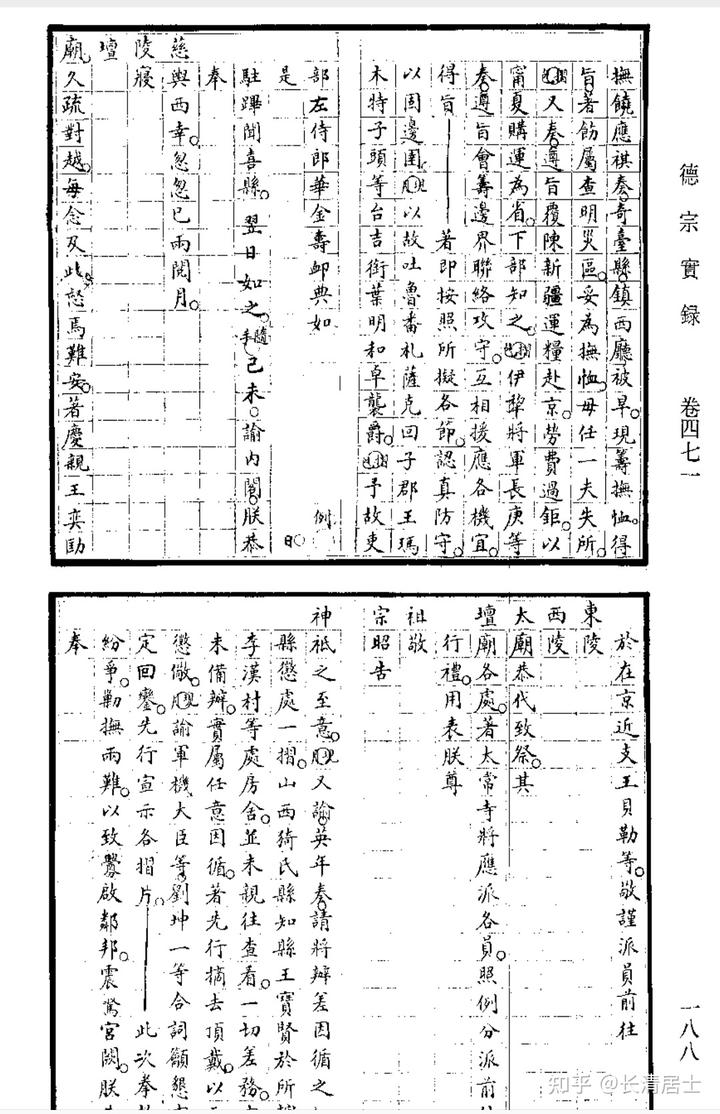 德宗實録 卷四七一
一八八
撫饒應祺奏奇臺縣鎮西廳被旱現籌撫恤得
旨著飭屬查明災區妥為撫恤毋任一夫失所
又奏遵旨覆陳新疆運糧赴京勞費過鉅以
甯夏購運為省下部知之伊犂將軍長庚等
奏遵旨會籌邊界聯絡攻守互相援應各機宜
得旨 著即按照所擬各節認真防守
以固邊圉以故吐魯番札薩克回子郡王瑪
木特子頭等台吉銜葉明和卓襲爵予故吏
部左侍郎華金壽卹典如例
是日
駐蹕聞喜縣翌日如之己未諭內閣朕恭
奉
慈輿西幸忽忽已兩閱月
陵寢
壇
廟久疏對越每念及此惄焉難安著慶親王奕劻
於在京近支王貝勒等敬謹派員前往
東陵
西陵
太廟恭代致祭其
壇廟各處著太常寺將應派各員照例分派前往
行禮用表朕尊
祖敬
宗昭告
神祗之至意又諭英年奏請將辦差因循之
縣懲處一摺山西猗氏縣知縣王寶賢於所
李漢村等處房舍並未親往查看一切差務
未備辦實屬任意因循著先行摘去頂戴以
懲儆諭軍機大臣等劉坤一等合詞籲懇
定回鑾先行宣示各摺片 此次拳
紛爭勦撫兩難以致釁啟鄰邦震驚宮闕朕
奉
知乎 @长清居士